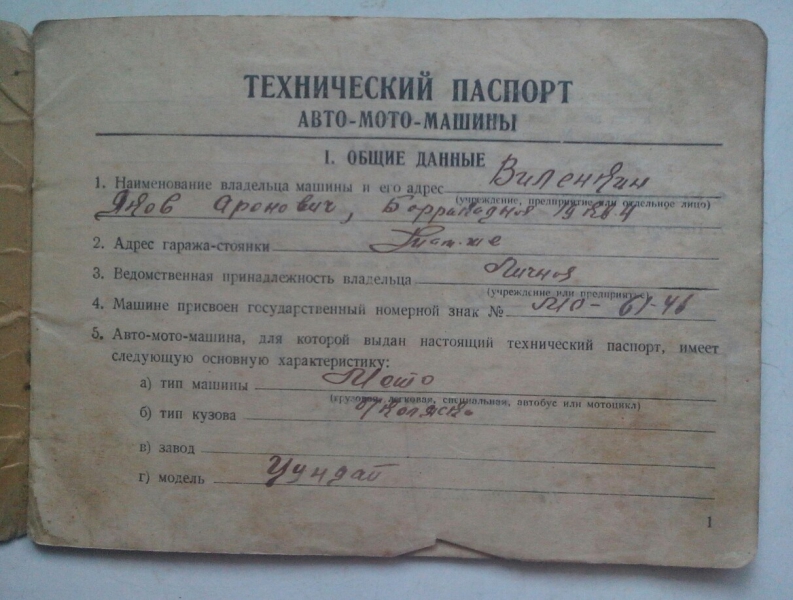 ТЕХНИЧЕСКИЙ ПАСПОРТ
АВТО-МОТО-МАШИНЫ
I. ОБЩИЕ ДАННЫЕ
1. Наименование владельца машины и его адрес Виленкин
(учреждение, предприятие или отдельное лицо)
Яков Аронович, 19 кв 4
2. Адрес гаража-стоянки там-же
3. Ведомственная принадлежность владельца Личная
(учреждение или предприятие)
4. Машине присвоен государственный номерной знак № 61-46
5. Авто-мото-машина, для которой выдан настоящий технический паспорт, имеет
следующую основную характеристику:
а) тип машины Мото
(грузовая, легковая, специальная, автобус или мотоцикл)
б) тип кузова б/коляски
в) завод
г) модель Цундап
1